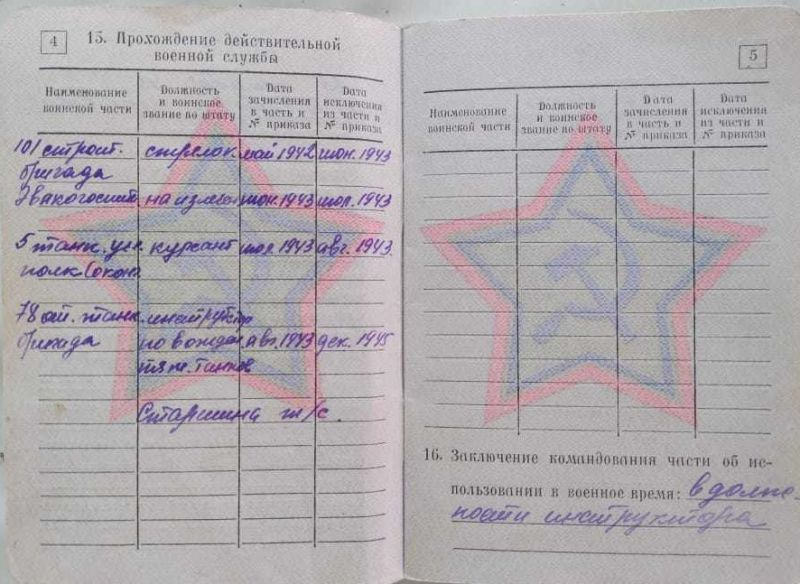 4
15. Прохождение действительной
военной службы
Наименование воинской части
Должность и воинское звание по штату
Дата зачисления в часть и № приказа
Дата исключения из части и № приказа
101 строит. стрелок май 1942 июн. 1943
бригада
Эвакогоспит. на излеч. июн. 1943 июл. 1943
5 танк. уч. курсант июл. 1943 авг. 1943
полк
78 танк. инструктор
бригада по вожден. авг. 1943 дек. 1945
тяж. танков
Старшина т/с.
5
Наименование воинской части
Должность и воинское звание по штату
Дата зачисления в часть и № приказа
Дата исключения из части и № приказа
16. Заключение командования части об ис-
пользовании в военное время: в долж-
ности инструктора